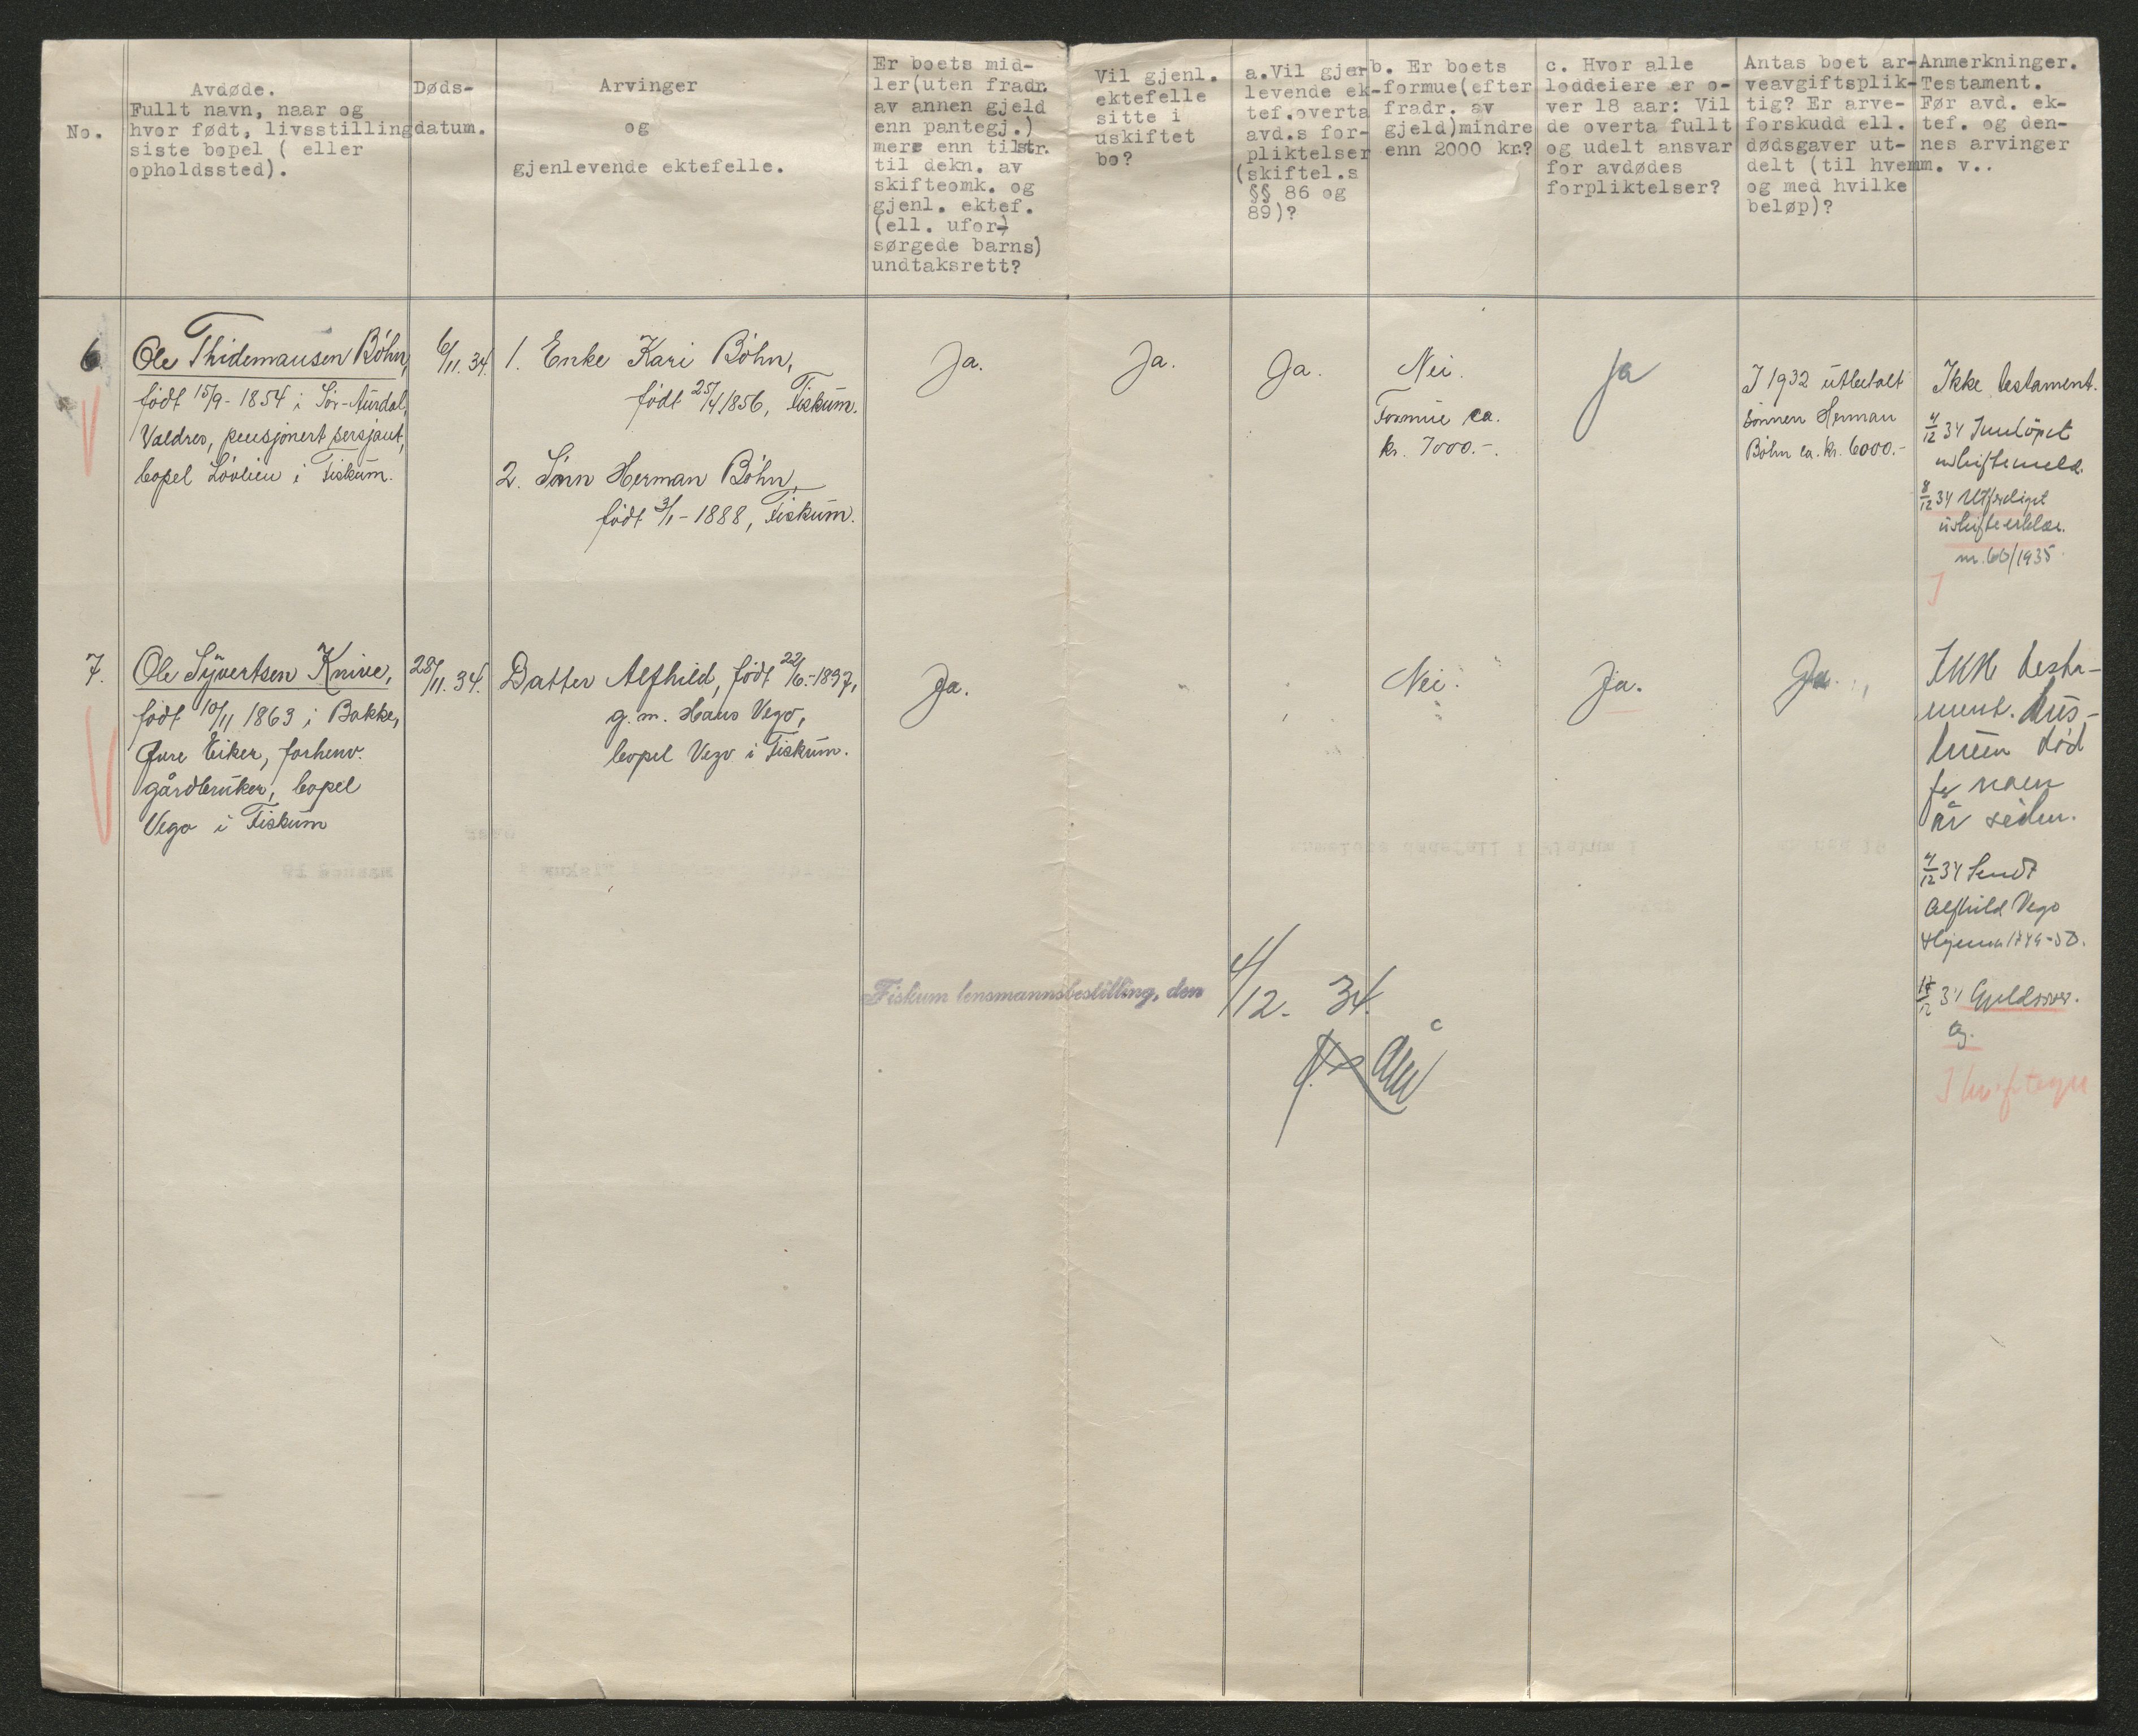 No.
Avdøde.
Fullt navn, naar og
hvor født, livsstilling
siste bopel ( eller
opholdssted).
Døds-
datum.
Arvinger
og
gjenlevende ektefelle.
Er boets mid-
ler(uten fradr.
av annen gjeld
enn pantegj.)
mere enn tilstr.
til dekn. av
skifteomk. og
gjenl. ektef.
(ell. ufor-
sørgede barns)
undtaksrett?
Vil gjenl.
ektefelle
sitte i
uskiftet
bo?
a.Vil gjen-
levende ek-
tef.overta
avd.s for-
pliktelser
(skiftel.s
§§ 86 og
89)?
b. Er boets
formue(efter
fradr. av
gjeld)mindre
enn 2000 kr.?
c. Hvor alle
loddeiere er o-
ver 18 aar: Vil
de overta fullt
og udelt ansvar
for avdødes
forpliktelser?
Antas boet ar-
veavgiftsplik-
tig? Er arve-
forskudd ell.
dødsgaver ut-
delt (til hvem
og med hvilke
beløp)?
Anmerkninger.
Testament.
Før avd. ek-
tef. og den-
nes arvinger
m. v..
6
Ole Thidemansen Böhn,
født 15/9- 1854 i Sör-Aurdal,
Valdres, pensjonert sersjant,
bopel Lövlien i Fiskum.
6/11. 34.
1. Enke Kari Böhn,
født 25/4 1856, Fiskum.
2. Sönn Herman Böhn,
født 3/1- 1888, Fiskum.
Ja.
Ja.
Ja.
Nei.
Formue ca.
kr. 7000.-.
Ja
I 1932 utbetalt
sönnen Herman
Böhn ca. kr. 6000.-
Ikke testament.
4/12 34 Innlöpet
uskiftemeld.
8/12 34 Utferdiget
uskifteerklær.
nr. 66/1935.
7.
Ole Syvertsen Knive,
født 10/11 1863 i Bakke,
Øvre Eiker, forhenv.
gårdbruker, bopel
Vego i Fiskum
28/11. 34.
Datter Alfhild, født 22/6.-1897,
g. m. Hans Vego,
bopel Vego i Fiskum.
Ja.
Nei.
Ja.
Ja.
Ikke testa-
ment. Hus-
truen död
for noen
år siden.
4/12 34 Sendt
Alfhild Vego
17/12 34 Gjeldsover.
Fiskum lensmannsbestilling, den 4/12. 34.